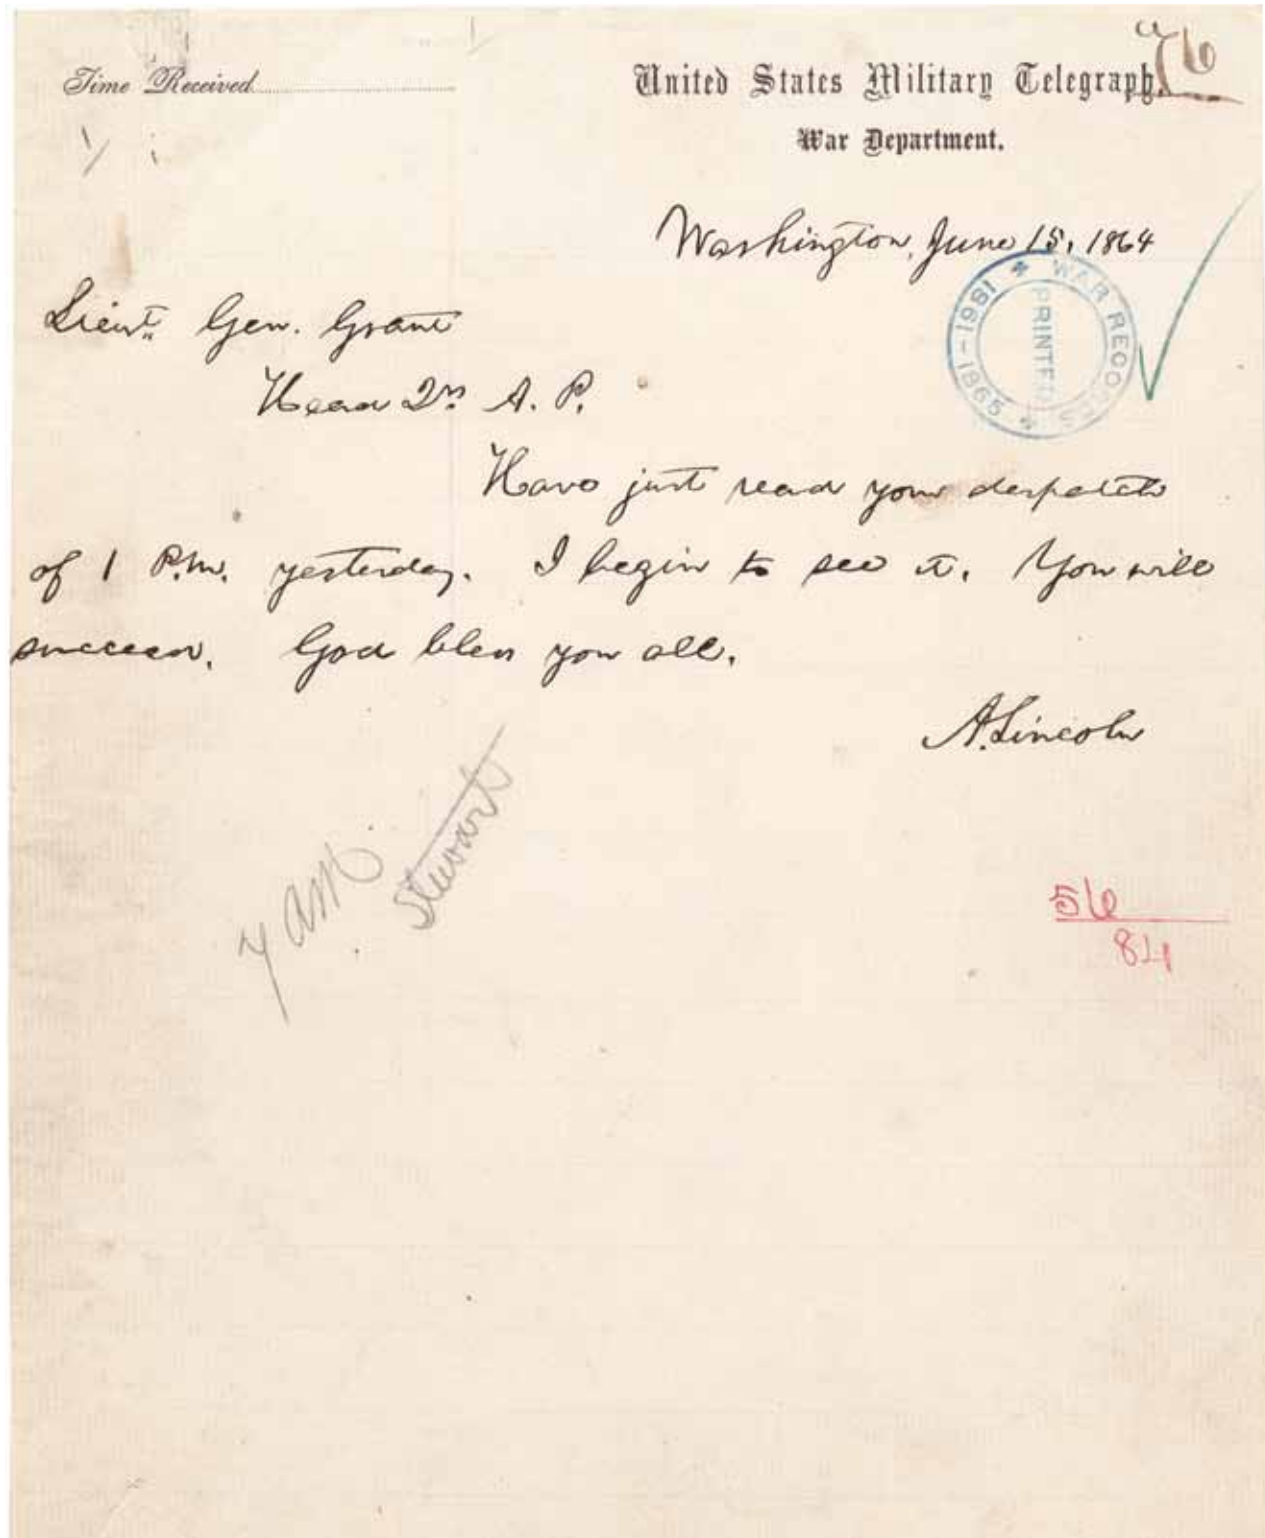 76
Time Received
United States Military Telegraph.
War Department.
Washington, June 15, 1864
WAR RECORDS 1861-1865
PRINTED
Lieut. Gen. Grant
Head Qrs. A. P.
Have just read your despatch
of 1 P.M. yesterday. I begin to see it. You will
succeed. God bless you all.
A. Lincoln
7 AM
Stewart
56
84